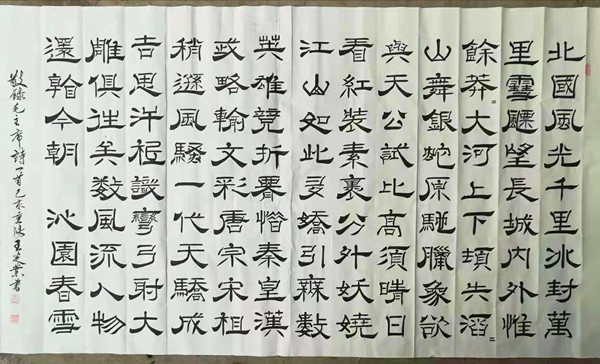 北國風光千里冰封萬
里雪飄望長城內外惟
餘莽大河上下頓失滔
山舞銀蛇原馳臘象欲
與天公試比高須晴日
看紅裝素裹分外妖嬈
江山如此多嬌引無數
英雄競折腰惜秦皇漢
武略輸文彩唐宗宋祖
稍遜風騷一代天驕成
吉思汗衹識彎弓射大
雕俱往矣數風流人物
還看今朝 沁園春雪
敬錄毛主席詩一首己亥重陽王業書